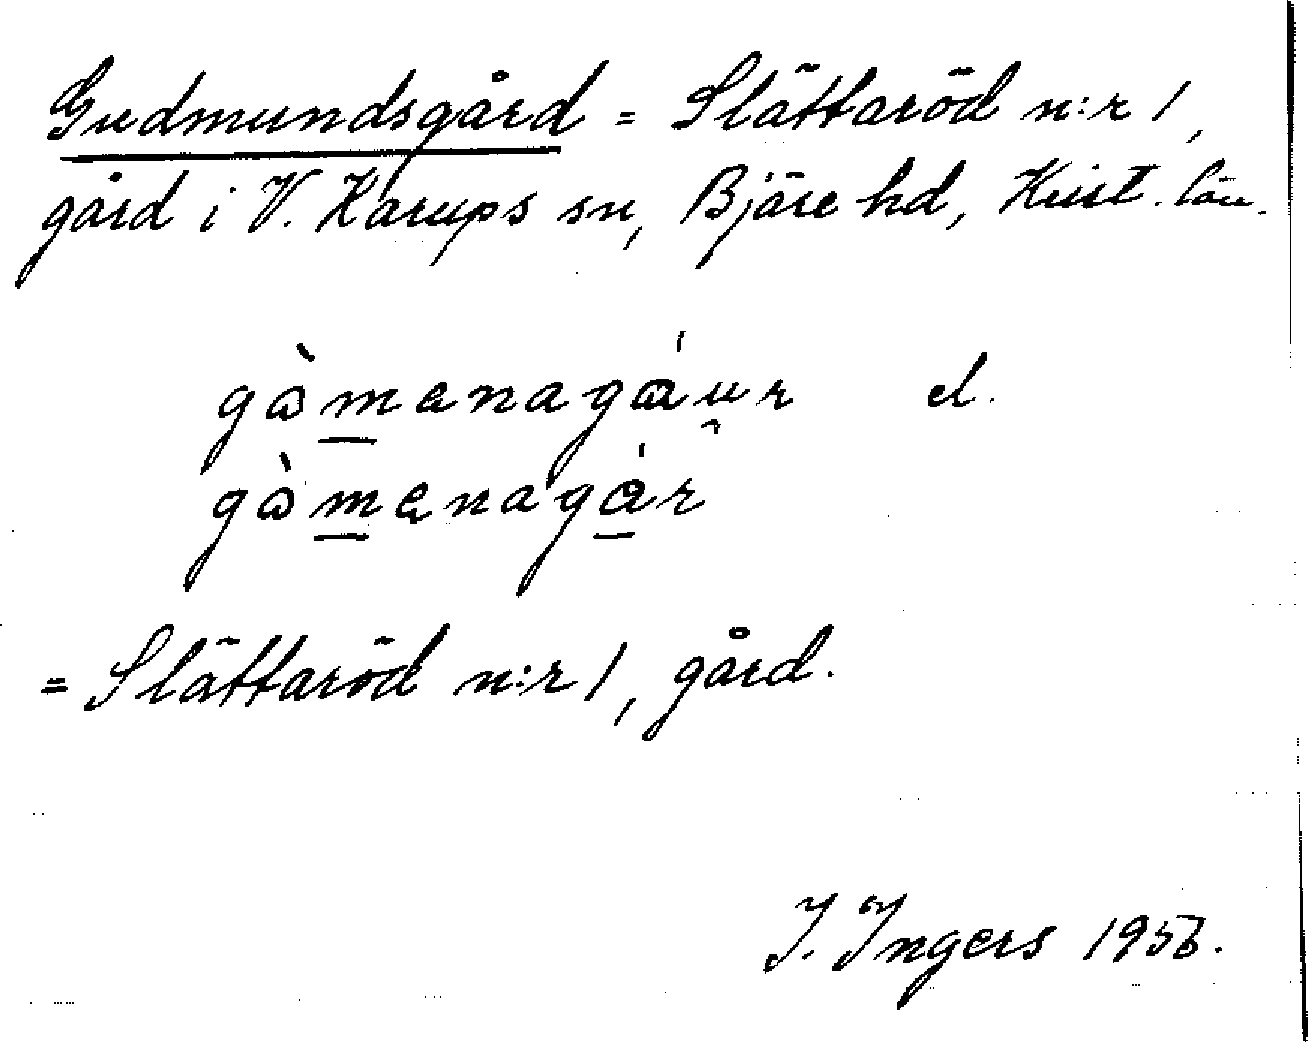 Gudmundsgård = Slättaröd n:r 1,
gård i V. Karups sn, Bjäre hd, Krist. län.
gɷ̀m̲ənagɑ́u̯r el.
gɷ̀m̲ənagɑ̲́r
= Slättaröd n:r 1, gård.
I. Ingers 1956.